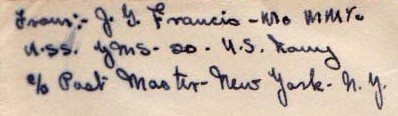 From:- J. G. Francis - Mo MM 1/c
U.SS. YMS- 20 - U.S. Navy
c/o Post Master- New York- N.Y.